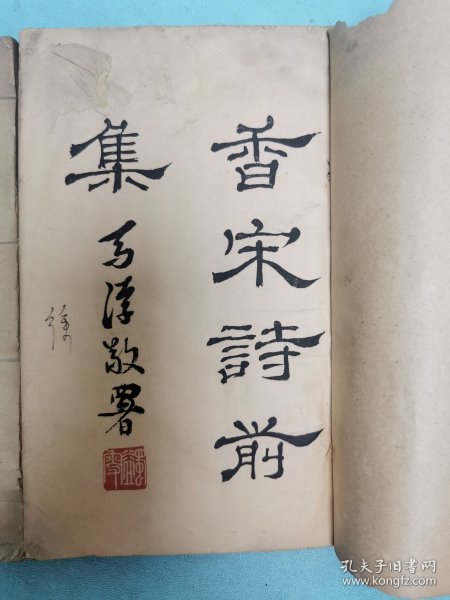 香宋詩前
集
馬浮敬署
徐
孔夫子旧书网
www.kongfz.com